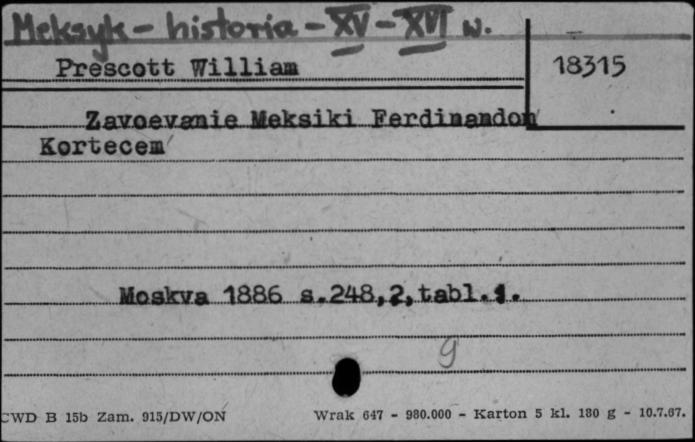 Meksyk - historia - XV - XVI w.
Prescott William
18315
Zavoevanie Meksiki Ferdinandom
Kortecem
Moskva 1886 s.248,2,tabl.1.
9
CWD B 15b Zam. 915/DW/ON
Wrak 647 - 980.000 - Karton 5 kl. 180 g - 10.7.67.